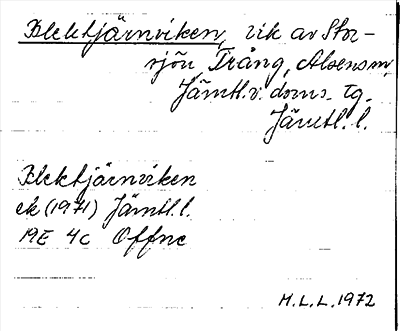 Blektjärnviken, vik av Stor-
sjön Trång, Alsens sn,
Jämtl. v. doms. tg.
Jämtl. l.
Blektjärnviken
ek (1971) Jämtl. l.
19E 4c Offne
M. L. L. 1972